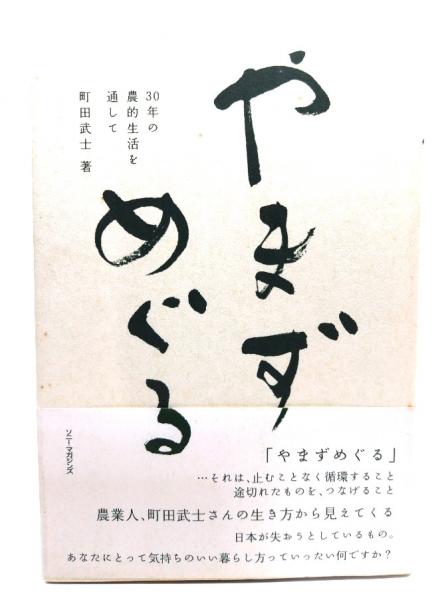 やまず
めぐる
30年の
農的生活を
通して
町田武士 著
ソニー・マガジンズ
「やまずめぐる」
…それは、止むことなく循環すること
途切れたものを、つなげること
農業人、町田武士さんの生き方から見えてくる
日本が失おうとしているもの。
あなたにとって気持ちのいい暮らし方っていったい何ですか?